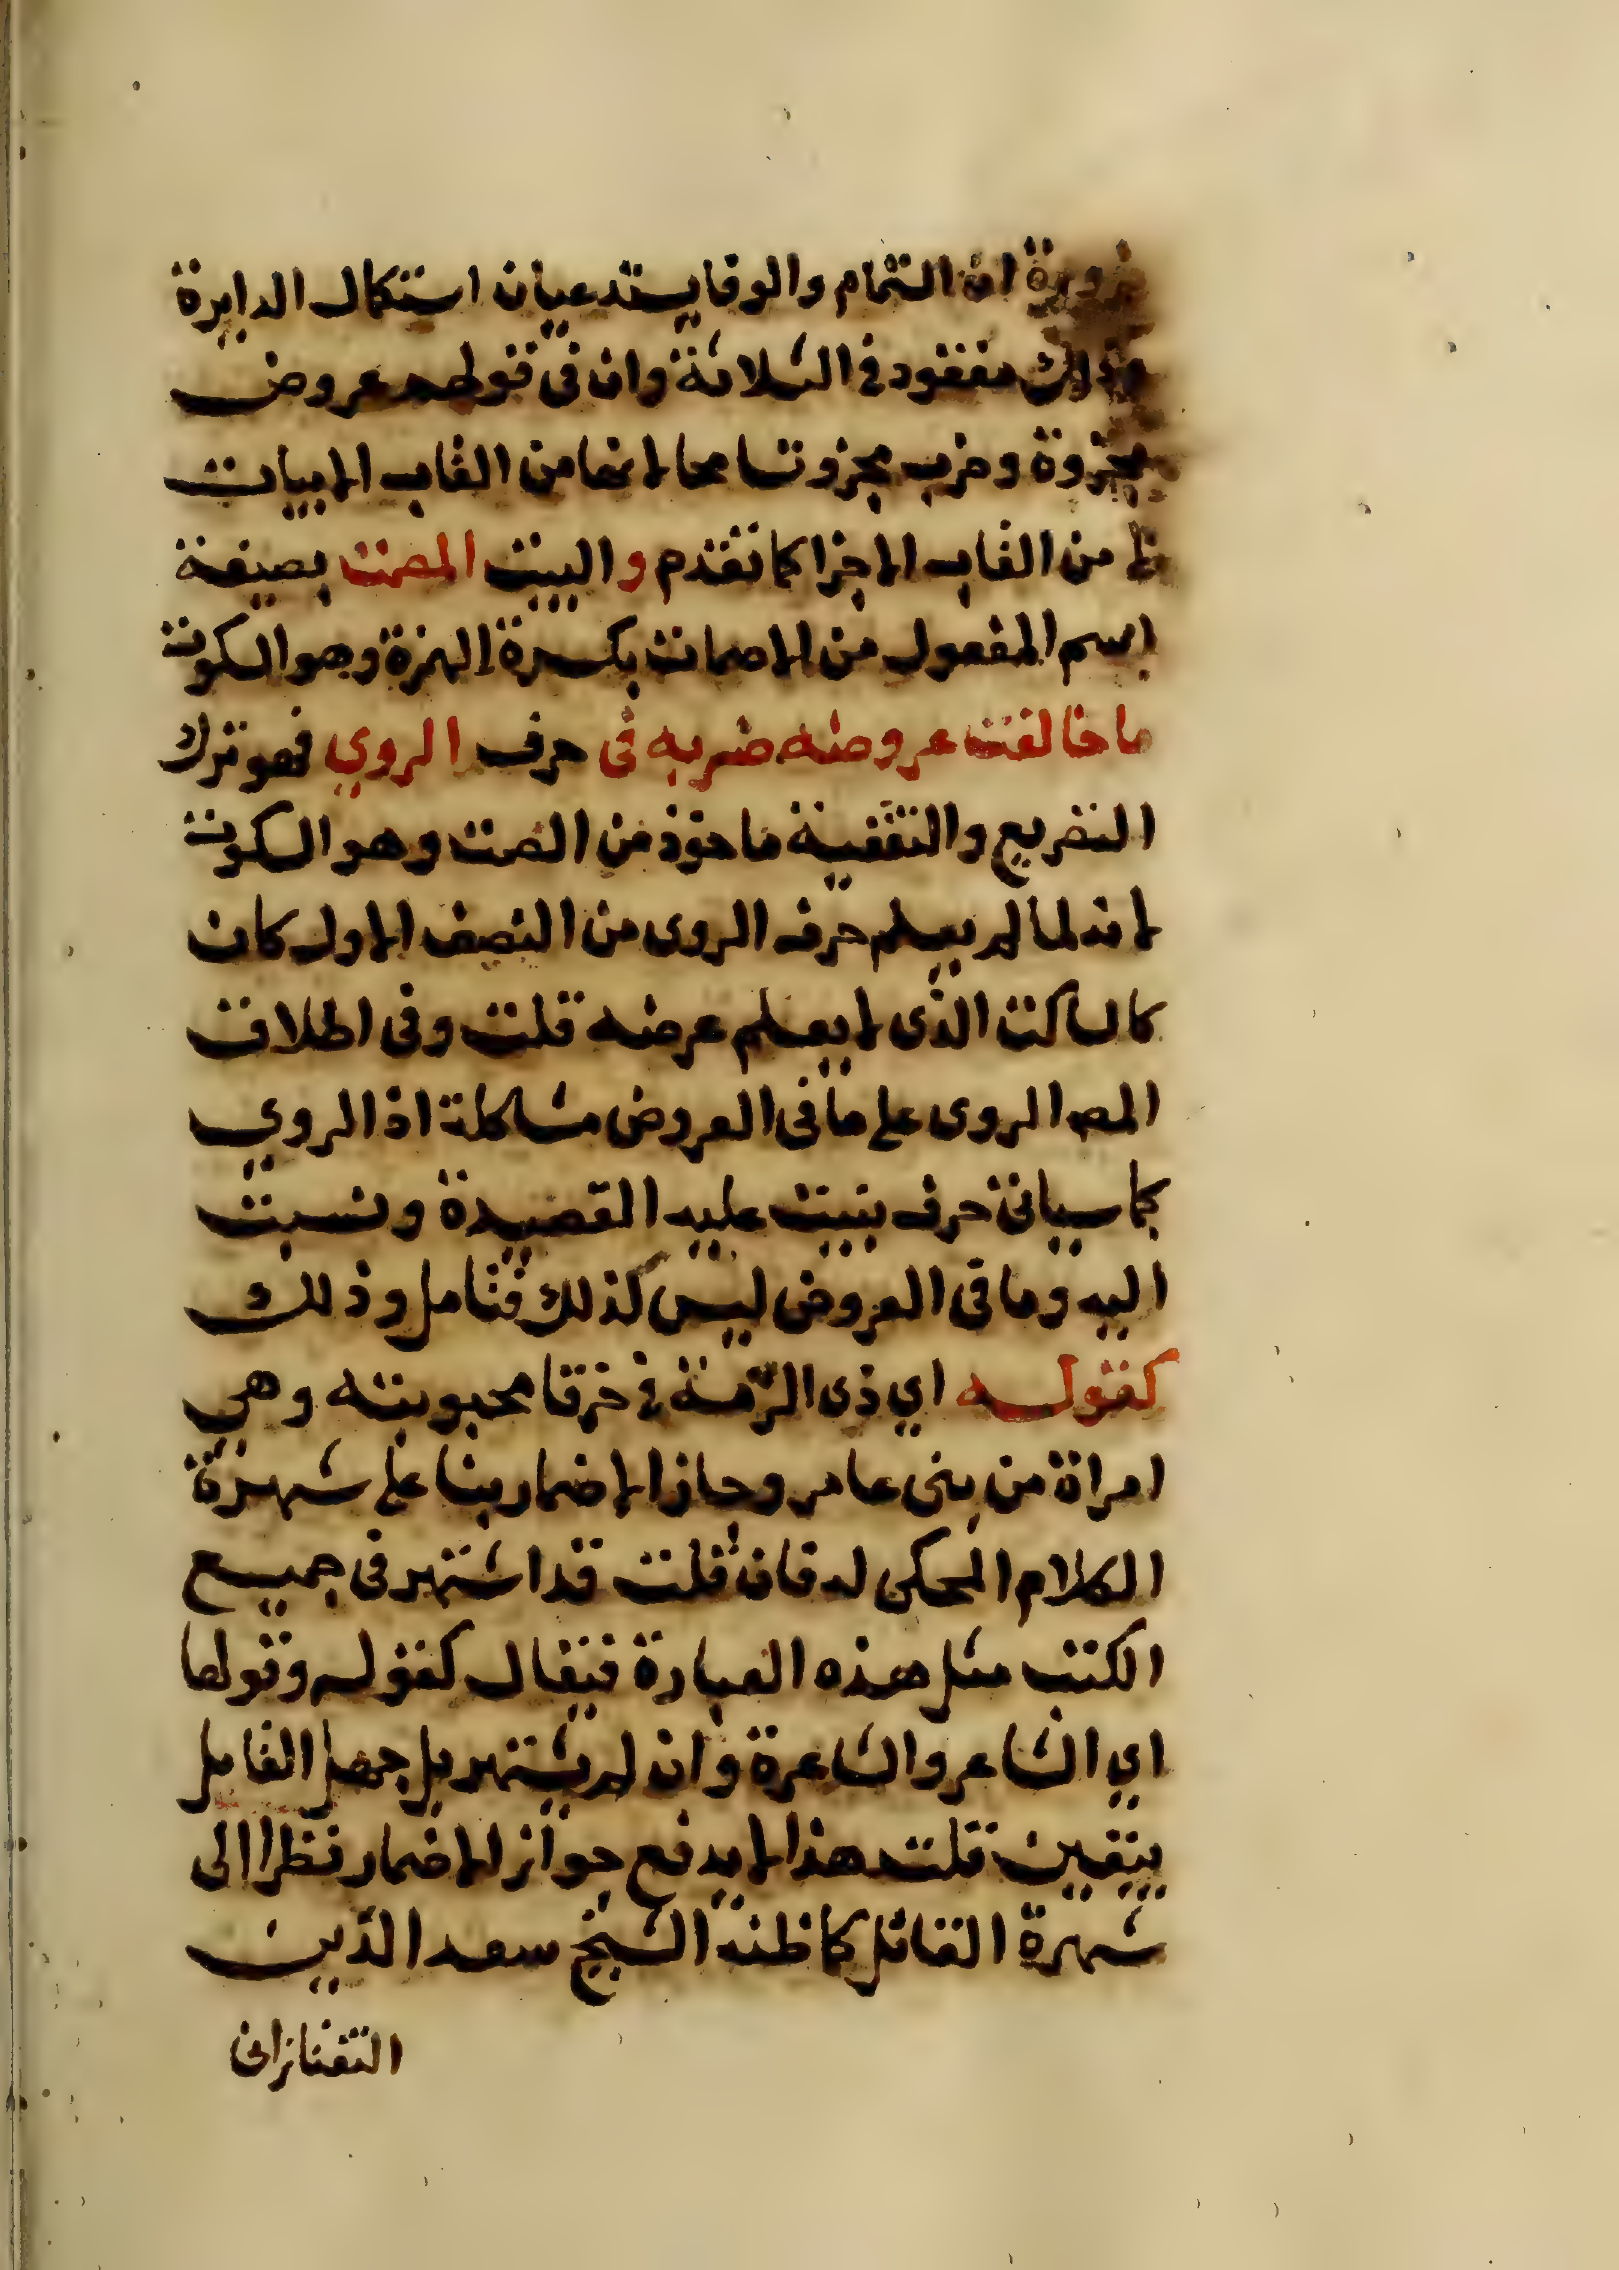 ضرورة ان التمام والوفا يستدعيان استكمال الدايرة
وذلك مفقود في الثلاثة وان في قولهم عروض
مجزوة وضرب مجزو تسامحا لانهما من القاب الابيات
لا من القاب الاجزا كما تقدم والبيت المصمت بصيغة
اسم المفعول من الاصمات بكسرة الهمزة وهو السكوت
ما خالفت عروضه ضربه في حرف الروي فهو ترك
التصريع والتقفية ماخوذ من الصمت وهو السكوت
لانه لما لم يعلم حرف الروى من النصف الاول كان
كالساكت الذى لا يعلم غرضه قلت وفى اطلاق
المص الروى على ما فى العروض مشاكلة اذ الروي
كما سياتى حرف بنيت عليه القصيدة ونسبت
اليه وما فى العروض ليس كذلك فتامل وذلك
كقوله اي ذى الرّمة في خرقا محبوبته وهي
امراة من بنى عامر وجاز الاضمار بنا على شهرة
الكلام المحكى له فان قلت قد اشتهر فى جميع
الكتب مثل هذه العبارة فيقال كقوله وقولها
اي الشاعر والشاعرة وان لم يشتهر بل جهل القايل
بيقين قلت هذا لا يدفع جواز الاضمار نظرا الى
شهرة القائل كما ظنه الشيخ سعد الدّين
التفتازانى